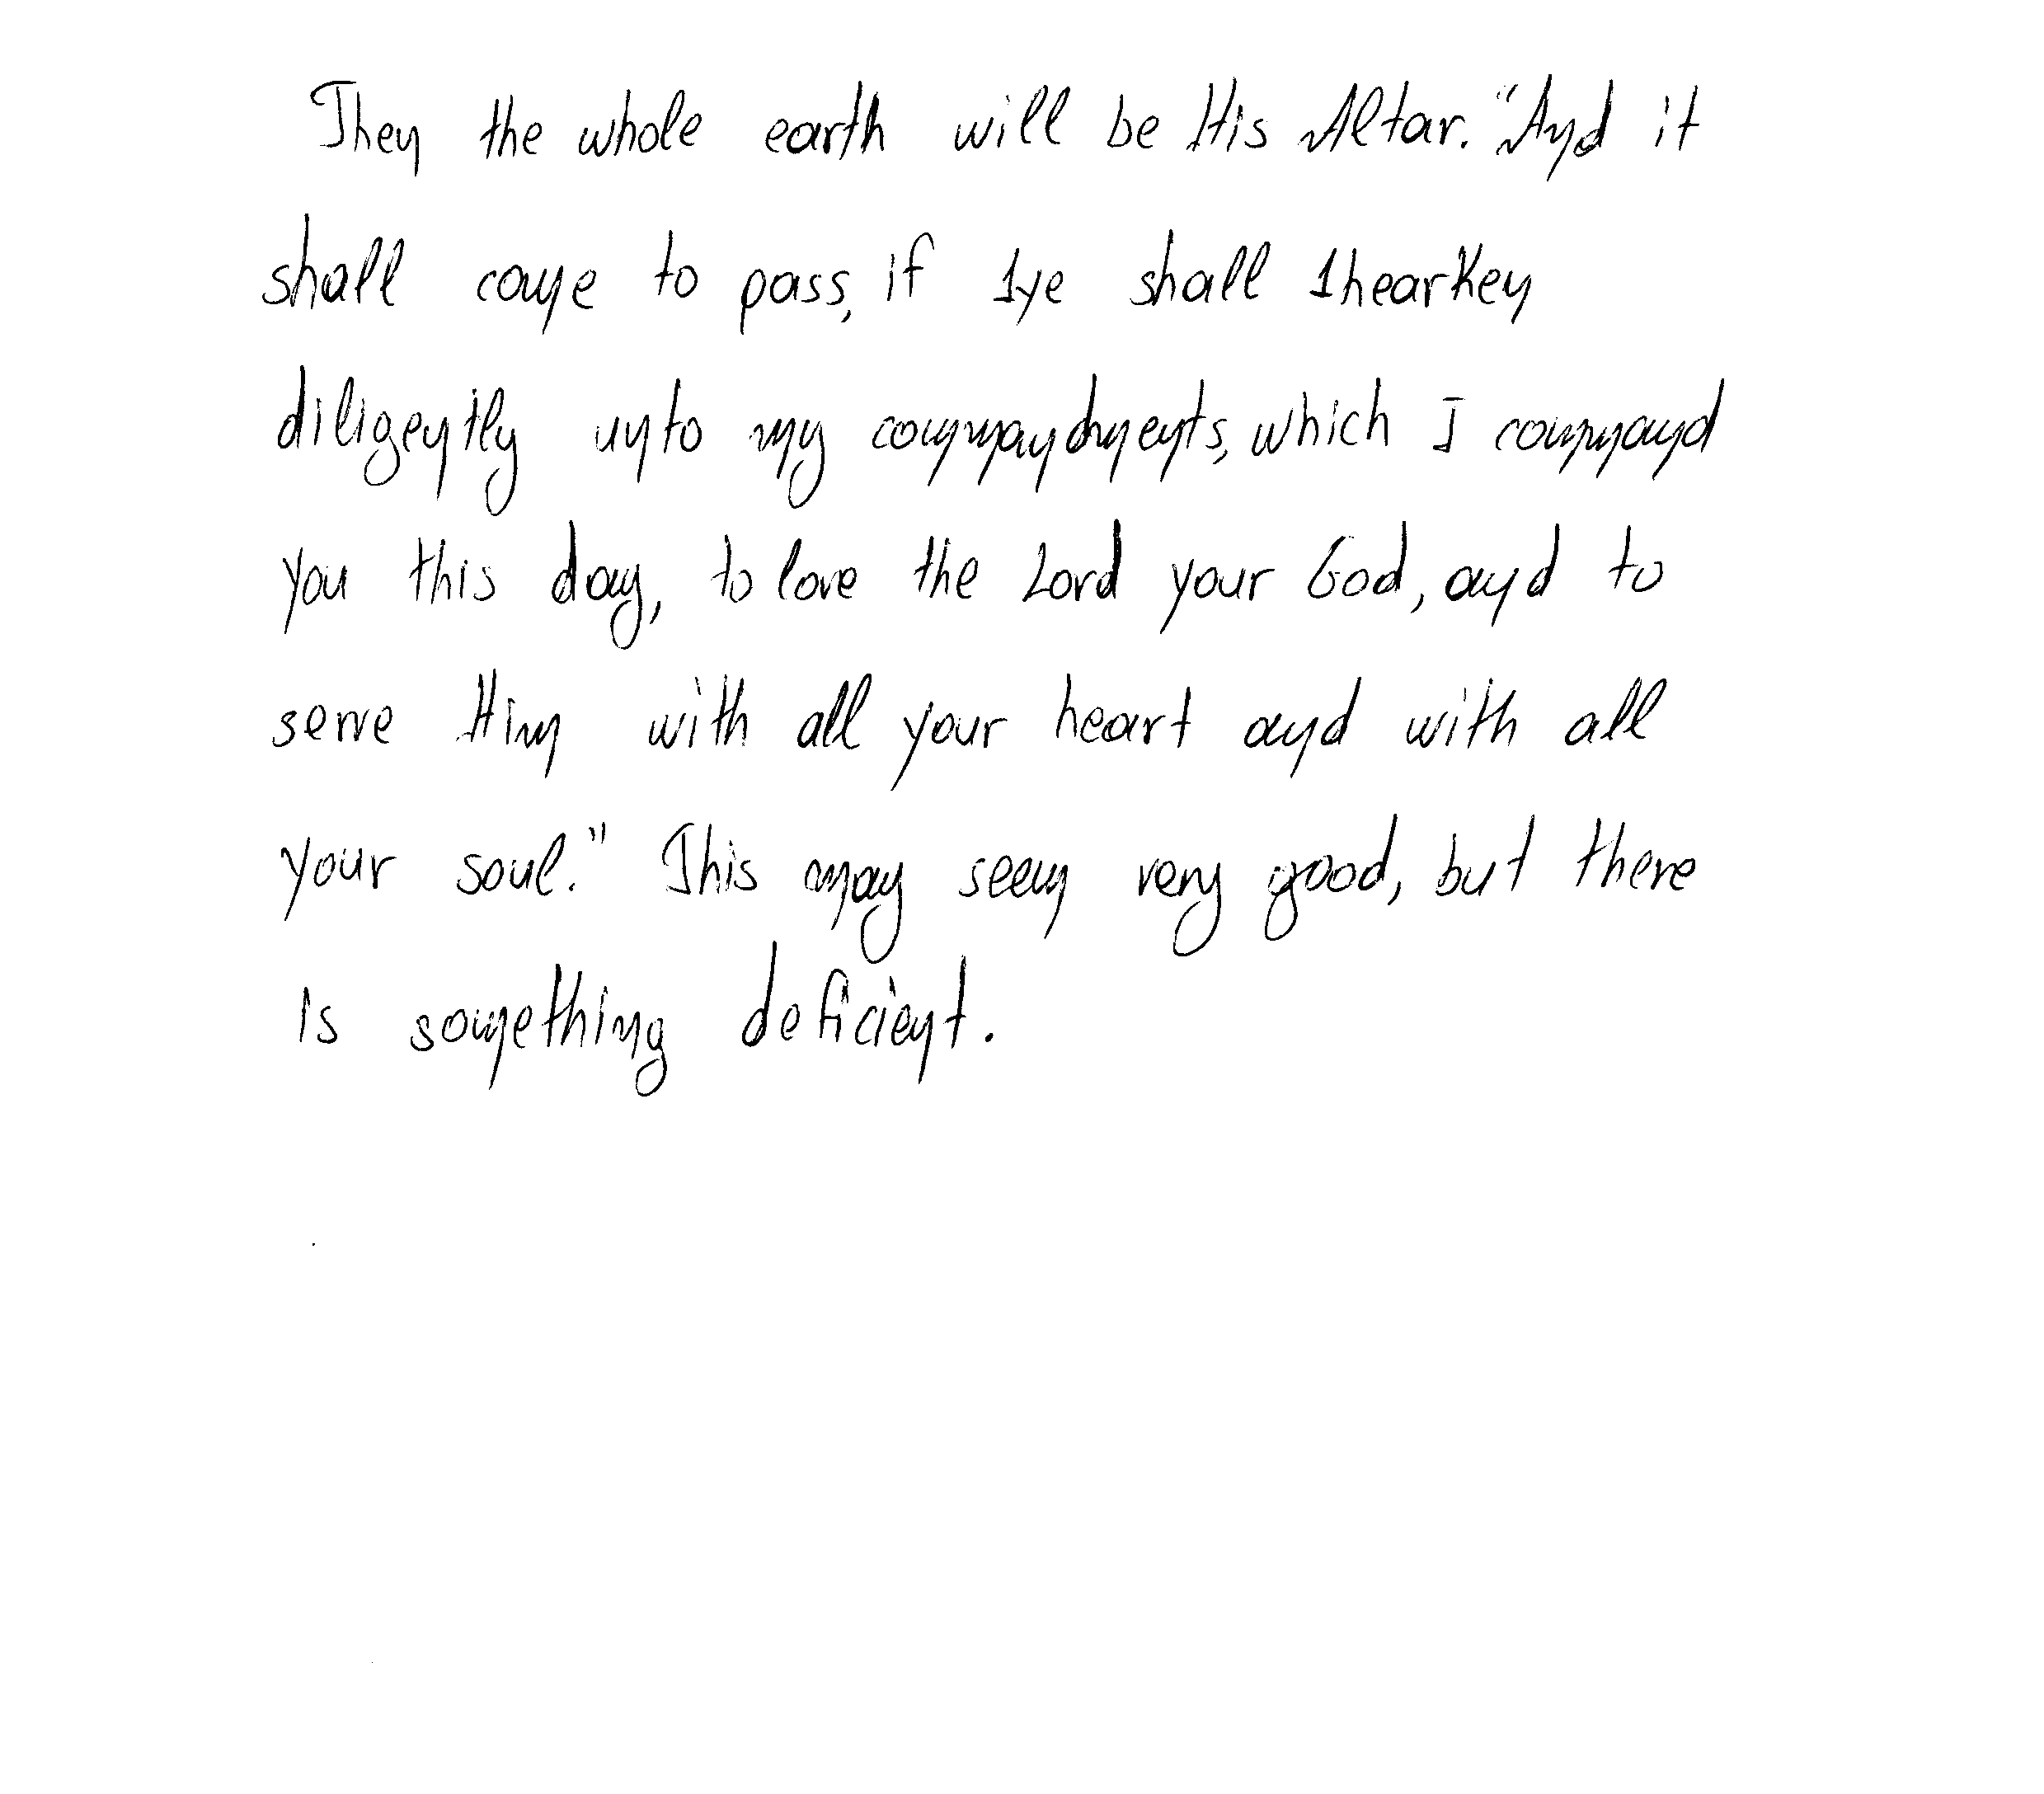 Then the whole earth will be His Altar. "And it
shall come to pass, if 1ye shall 1hearken
diligently unto my commandments, which I command
you this day, to love the Lord your God, and to
serve Him with all your heart and with all
your soul." This may seem very good, but there
is something deficient.